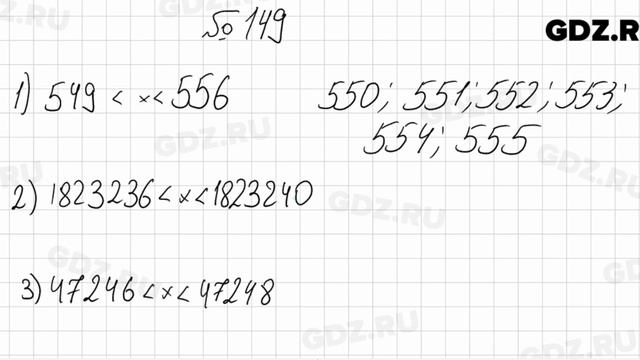 № 149
GDZ.R
1) 549 < x < 556 550; 551; 552; 553;
554; 555
2) 1823236 < x < 1823240
3) 47246 < x < 47248
GDZ.RU
GDZ.RU
GDZ.RU
GDZ.RU
GDZ.RU